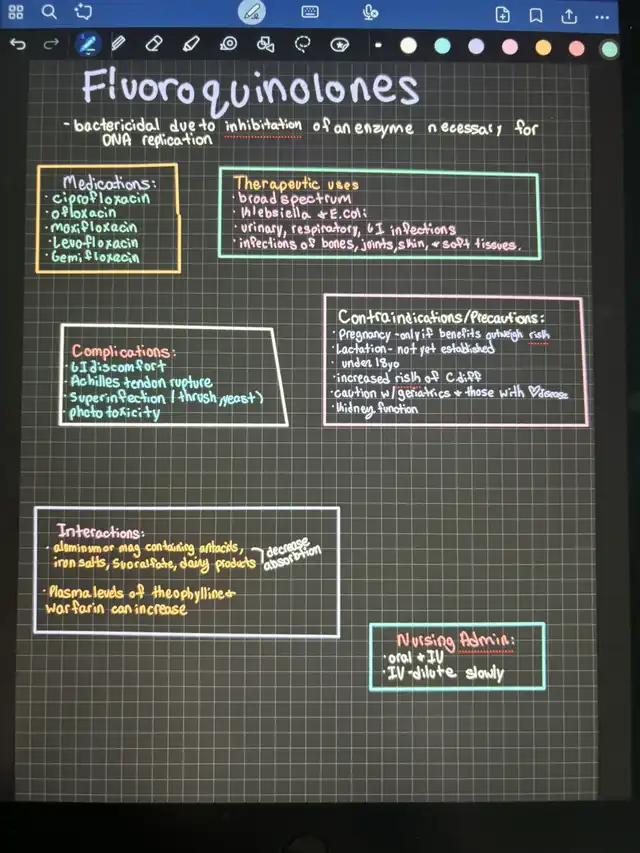 Fluoroquinolones
- bactericidal due to inhibitation of an enzyme necessary for
DNA replication
Medications:
• ciprofloxacin
• ofloxacin
• moxifloxacin
• Levofloxacin
• Gemifloxacin
Therapeutic uses
• broad spectrum
• Klebsiella + E.coli
• urinary, respiratory, GI infections
• infections of bones, joints, skin, + soft tissues.
Complications:
• GI discomfort
• Achilles tendon rupture
• Superinfection (thrush, yeast)
• photo toxicity
Contraindications/Precautions:
• Pregnancy - only if benefits outweigh risk
• Lactation - not yet established
• under 18yo
• increased risk of C.diff
• caution w/ geriatrics + those with ♡ disease
• kidney function
Interactions:
• aluminum or mag containing antacids,
iron salts, sucralfate, daily products
decrease
absorption
• Plasma levels of theophylline +
warfarin can increase
Nursing Admin:
• oral + IV
• IV - dilute slowly